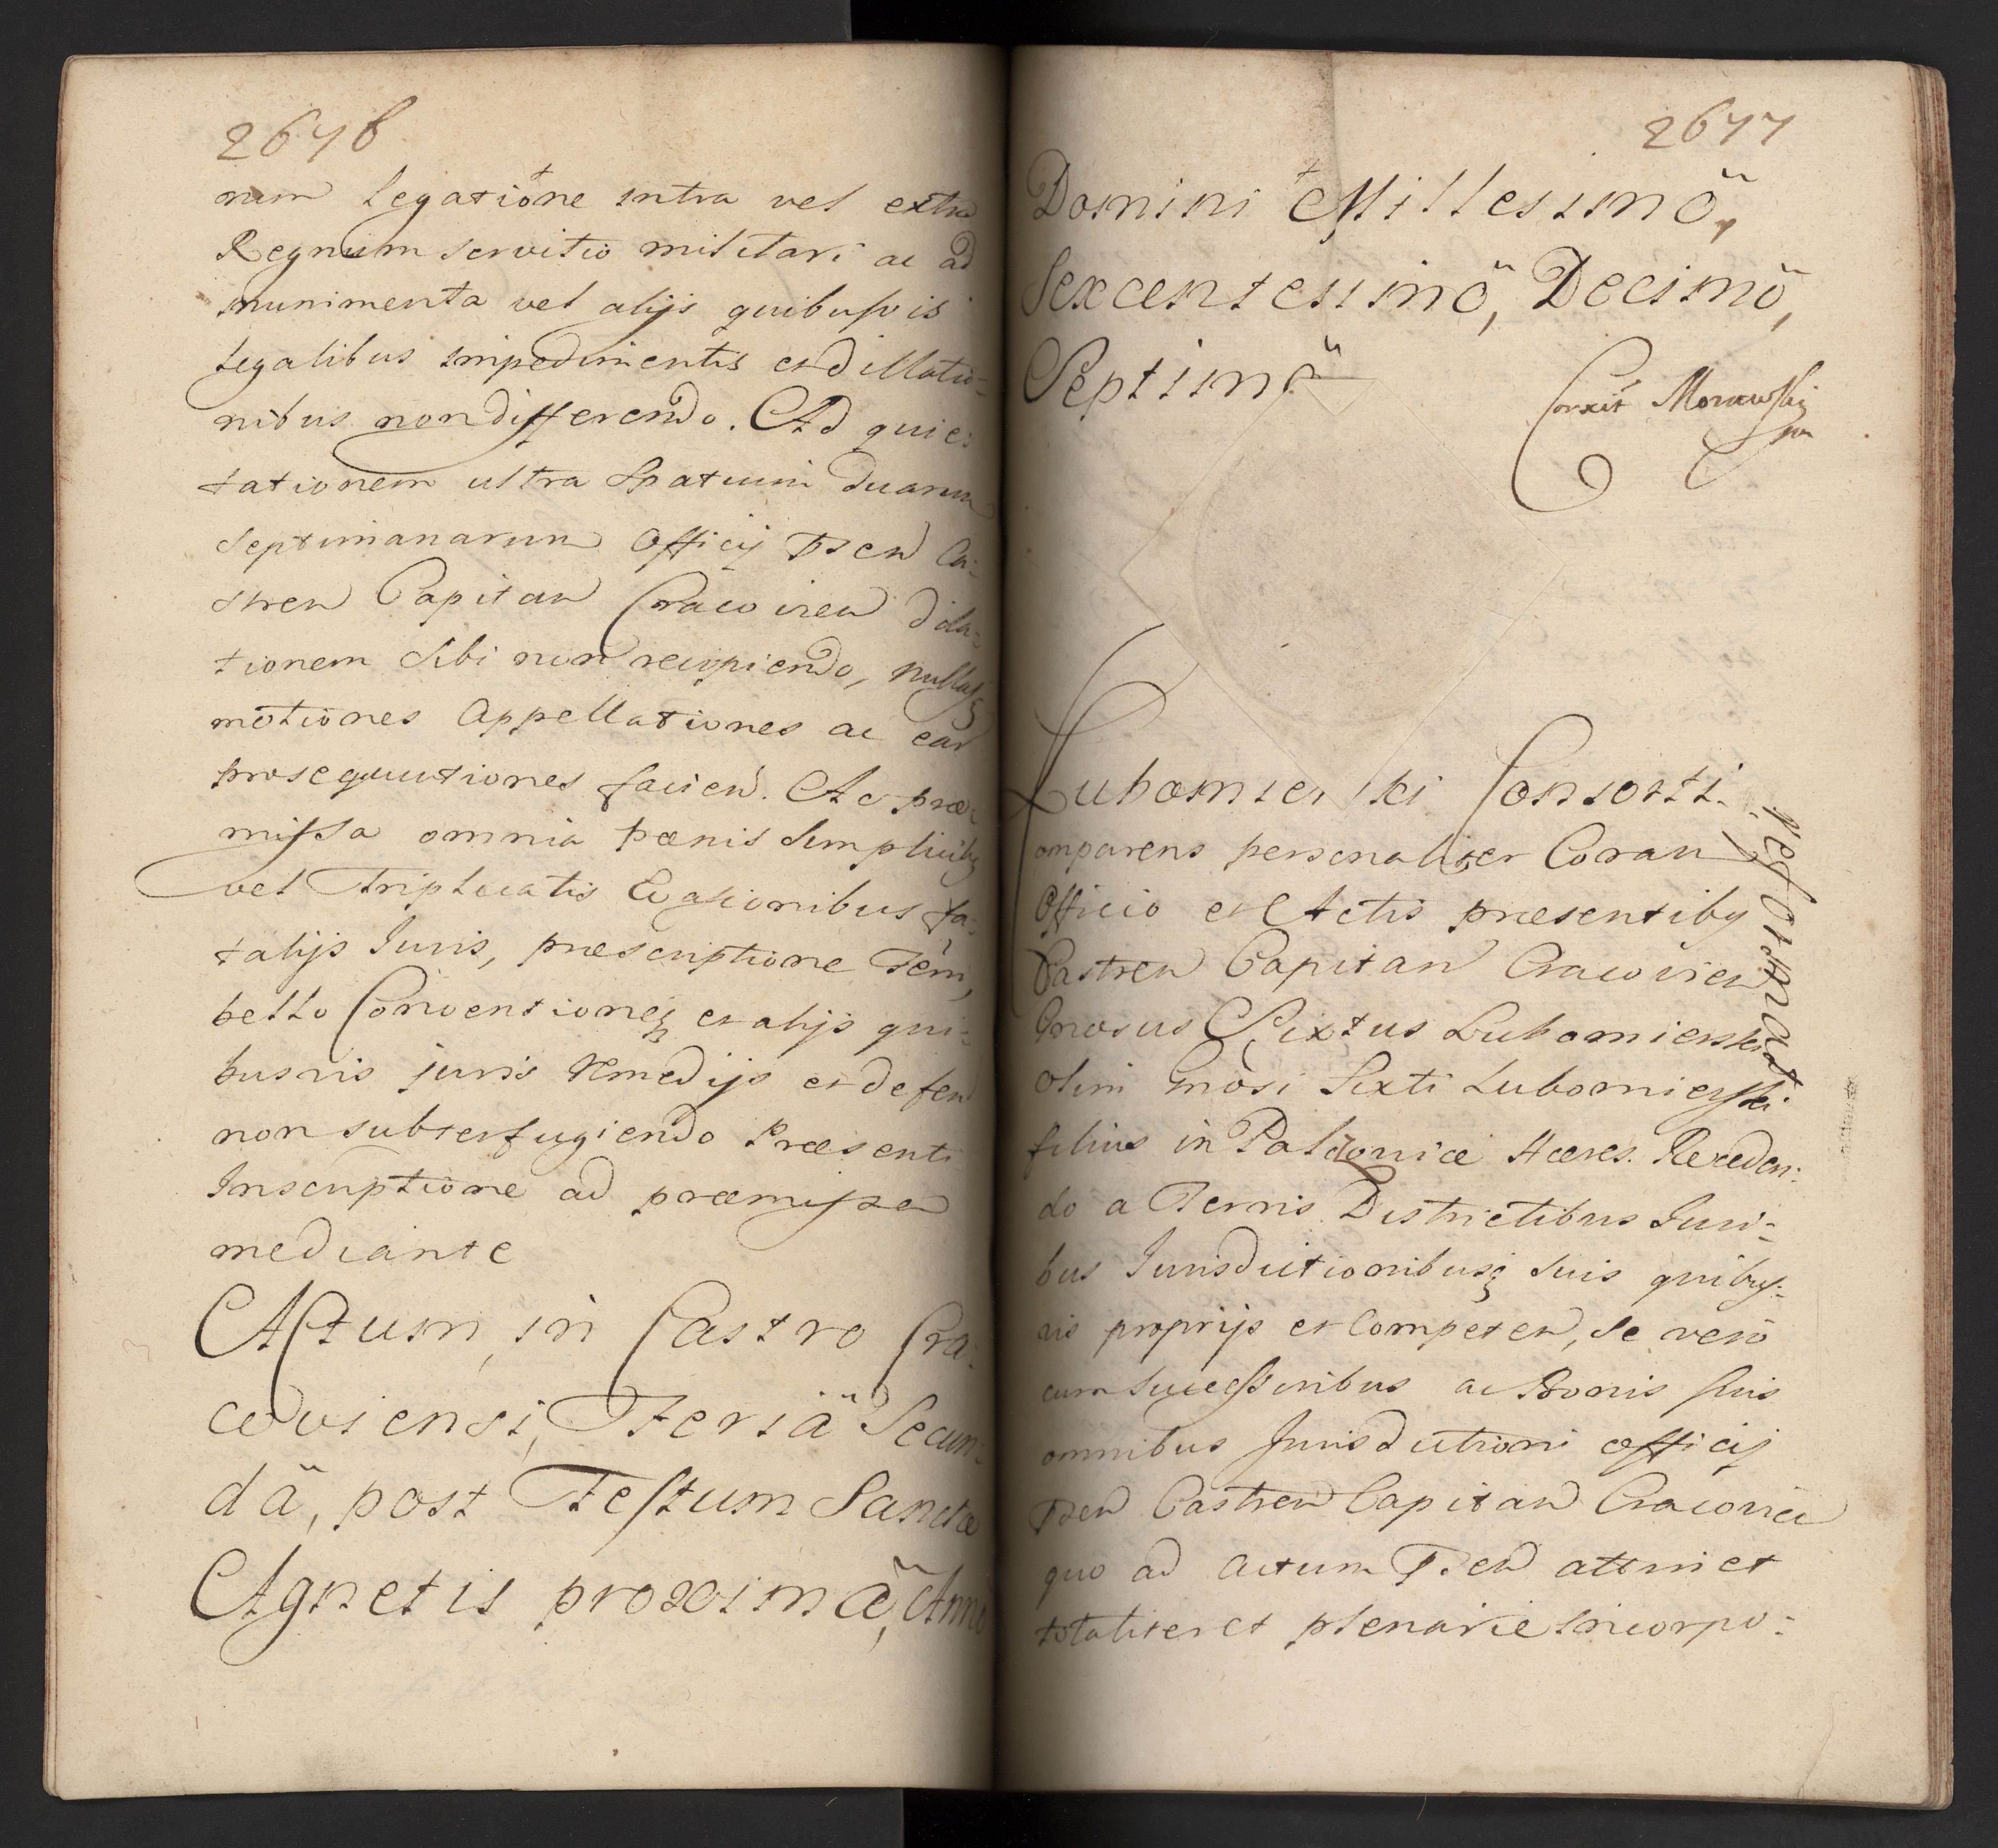 2676
num Legatione intra vel extra
Regnum servitio militari ac ad
munimenta vel alijs quibusvis
legalibus impedimentis et dillatio-
nibus non differendo. Ad quie-
tationem ultra Spatium duarum
Septimanarum Officij Psen Ca-
stren Capitan Cracovien dila-
tionem Sibi non recipiendo, nullasq
motiones Appellationes ac ear
prosequutiones facien. Ac præ-
missa omnia pœnis Simplicibq
vel Triplicatis Evasionibus fa-
talijs Iuris, præscriptione Tem,
bello Conventioneq et alijs qui-
busvis juris remedijs et defen
non subterfugiendo Præsenti
Inscriptione ad præmissa
mediante
Actum, in Castro Cra-
coviensi, Feriâ Secun-
dâ, post Festum Sanctæ
Agnetis proximâ, Anno
2677
Domini Millesimô,
Sexcentesimô, Decimô,
Septimô
Corxit Morawski
mp
Lubomierski Consorti.
Reformat
omparens personaliter Coram
Officio et Actis præsentibq
Castren Capitan Cracovien
Gnosus Sixtus Lubomierski
olim Gnosi Sixti Lubomierski
filius in Palizonice Hæres. Receden-
do a Terris Districtibus Iuri-
bus Iurisdictionibusq suis quibus-
vis proprijs et Competen, se vero
cum Successoribus ac Bonis suis
omnibus Jurisdictioni officij
Psen Castren Capitan Cracovien
quo ad actum Psen attinet
totaliter et plenarie incorpo-